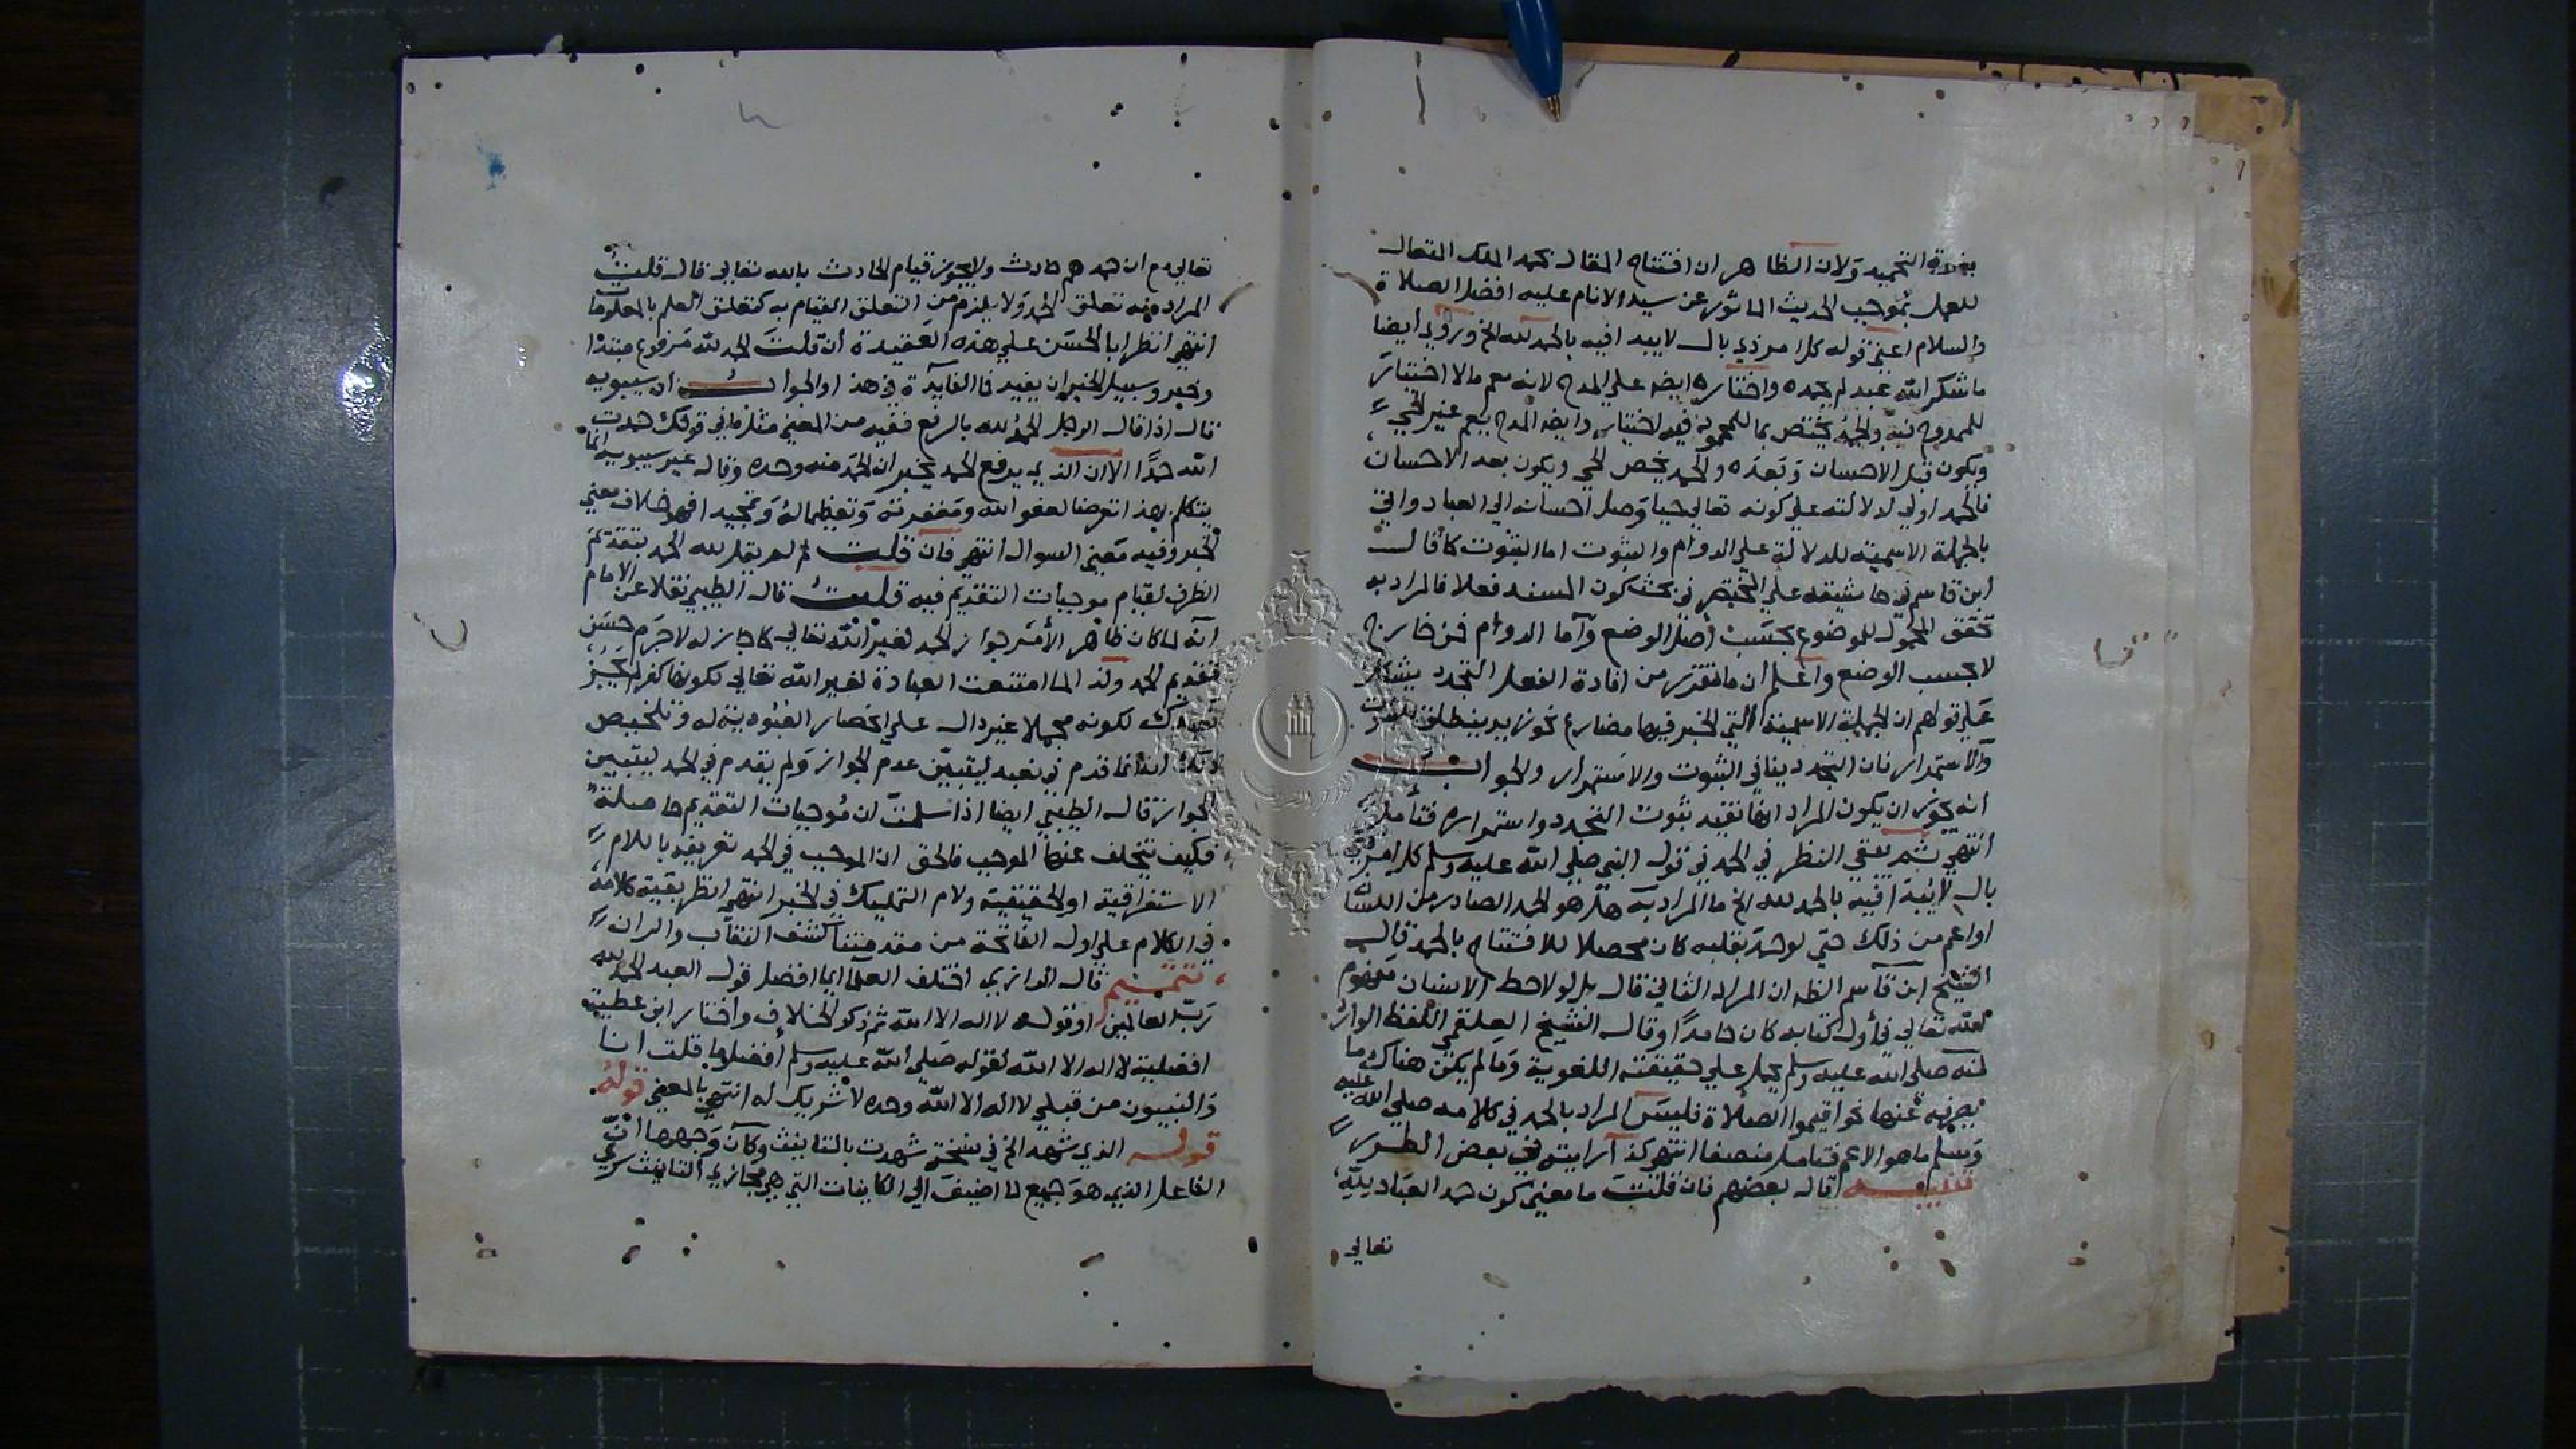 التحميد ولان الظاهر ان افتتاح المقال بحمد الملك المتعال
للعمل بموجب الحديث الماثور عن سيد الانام عليه افضل الصلاة
والسلام اعني قوله كل امر ذي بال لا يبدا فيه بالحمد لله الخ وروي ايضا
ما شكر الله عبد لم يحمده واختاره ايضه علي المدح لانه يعم مالا اختيار
للممدوح فيه والحمد يختص بما للمحمود فيه اختيار وايضه المدح يعم غير الحي
ويكون قبل الاحسان وبعده والحمد يخص الحي ويكون بعد الاحسان
فالحمد اولي لدلالته علي كونه تعالي حيا وصل احسانه الي العباد واتي
بالجملة الاسمية للدلالة علي الدوام والثبوت اما الثبوت كما قال
ابن قاسم في حاشيته علي المختصر في بحث كون المسند فعلا فالمراد به
تحقق المحمول للموضوع بحسب اصل الوضع واما الدوام فمن خارج
لا بحسب الوضع واعلم ان ما تقرر من افادة الفعل التجدد يشكل
علي قولهم ان الجملة الاسمية التي الخبر فيها مضارع نحو زيد ينطلق
والاستمرار فان التجدد ينافي الثبوت والاستمرار والجواب
انه يجوز ان يكون المراد انها تفيد ثبوت التجدد واستمراره فتأمل
انتهي ثم بقي النظر في الحمد في قول النبي صلي الله عليه وسلم كل امر ذي
بال لا يبدا فيه بالحمد لله الخ ما المراد به هل هو الحمد الصادر من اللسان
او اعم من ذلك حتي لو حمد بقلبه كان محصلا للافتتاح بالحمد قال
الشيخ ابن قاسم الظه ان المراد الثاني قال بل لو لاحظ الانسان مفهوم
لله تعالي في أول كتابه كان حامداً وقال الشيخ العلقمي اللفظ الوارد
منه صلي الله عليه وسلم يحمل علي حقيقته اللغوية وما لم يكن هناك ما
يصرفه عنها نحو اقيموا الصلاة فليس المراد بالحمد في كلامه صلي الله عليه
وسلم ما هو الاعم فتامل منصفا انتهي كذا رايته في بعض الطرر
تنبيه قال بعضهم فان قلت ما معني كون حمد العباد لله
تعالي
تعالي مع ان حمدهم حادث ولا يجوز قيام الحادث بالله تعالي قال قلت
المراد منه تعلق الحمد ولا يلزم من التعلق القيام به كتعلق العلم بالمعلومات
انتهي انظر ابا الحسن علي هذه العقيدة ان قلت الحمد لله مرفوع مبتدا
وخبر وسبيل الخبر ان يفيد فما الفايدة في هذا والجواب ان سيبويه
قال اذا قال الرجل الحمد لله بالرفع ففيه من المعني مثل ما في قولك حمدت
الله حمدًا الا ان الذي يرفع الحمد يخبر ان الحمد منه وحده وقال غير سيبويه انما
يتكلم بهذا تعرضا لعفو الله ومغفرته وتعظيما له وتمجيدا فهو خلاف معني
الخبر وفيه معني السوال انتهي فان قلت لم لم يقل لله الحمد بتقديم
الظرف لقيام موجبات التقديم فيه قلت قال الطيبي نقلا عن الامام
انه لما كان ظاهر الأمر جواز الحمد لغير الله تعالي كما جاز له لا جرم حسن
تقديم الحمد ولذا لما امتنعت العبادة لغير الله تعالي لكونها كفرا
لكونه مجملا غير دال علي انحصار العبودية له وتلخيص
ذلك انه انما قدم في نعبد ليتبين عدم الجواز ولم يقدم في الحمد ليتبين
الجواز قال الطيبي ايضا اذا سلمت ان موجبات التقديم حاصلة
فكيف يتخلف عنها الموجب فالحق ان الموجب في الحمد تعريفه باللام
الاستغراقية او الحقيقية ولام التمليك في الخبر انتهي انظر بقية كلامه
في الكلام علي اول الفاتحة من مقدمتنا كشف النقاب والران
تتميم قال الرازي اختلف العلما ايما افضل قول العبد الحمد لله
رب العالمين او قوله لا اله الا الله ثم ذكر الخلاف واختار ابن عطية
افضلية لا اله الا الله لقوله صلي الله عليه وسلم أفضل ما قلت انا
والنبيون من قبلي لا اله الا الله وحده لا شريك له انتهي بالمعني قوله
قوله الذي شهد الخ في نسخة شهدت بالتانيث وكان وجهها ان
الفاعل الذي هو جميع لما اضيف الي الكاينات التي هي مجازي التانيث سري